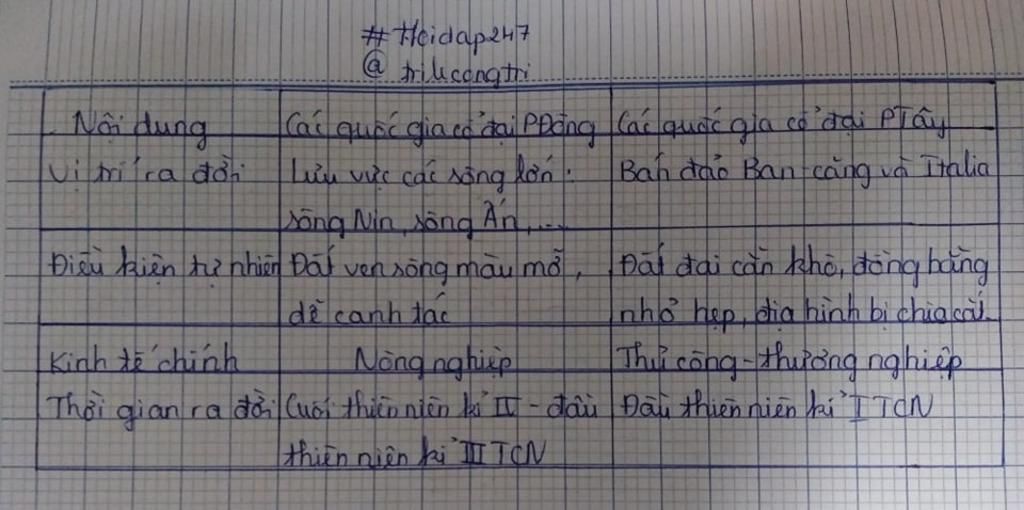 #Hoidap247
@ trikcongtri
Nội dung
Các quốc gia cổ đại PĐông
Các quốc gia cổ đại PTây
Vị trí ra đời
Lưu vực các sông lớn:
sông Nin, sông Ấn,...
Bán đảo Ban-căng và Italia
Điều kiện tự nhiên
Đất ven sông màu mỡ,
dễ canh tác
Đất đai cằn khô, đồng bằng
nhỏ hẹp, địa hình bị chia cắt
Kinh tế chính
Nông nghiệp
Thủ công-thương nghiệp
Thời gian ra đời
Cuối thiên niên kỉ IV - đầu
thiên niên kỉ III TCN
Đầu thiên niên kỉ I TCN